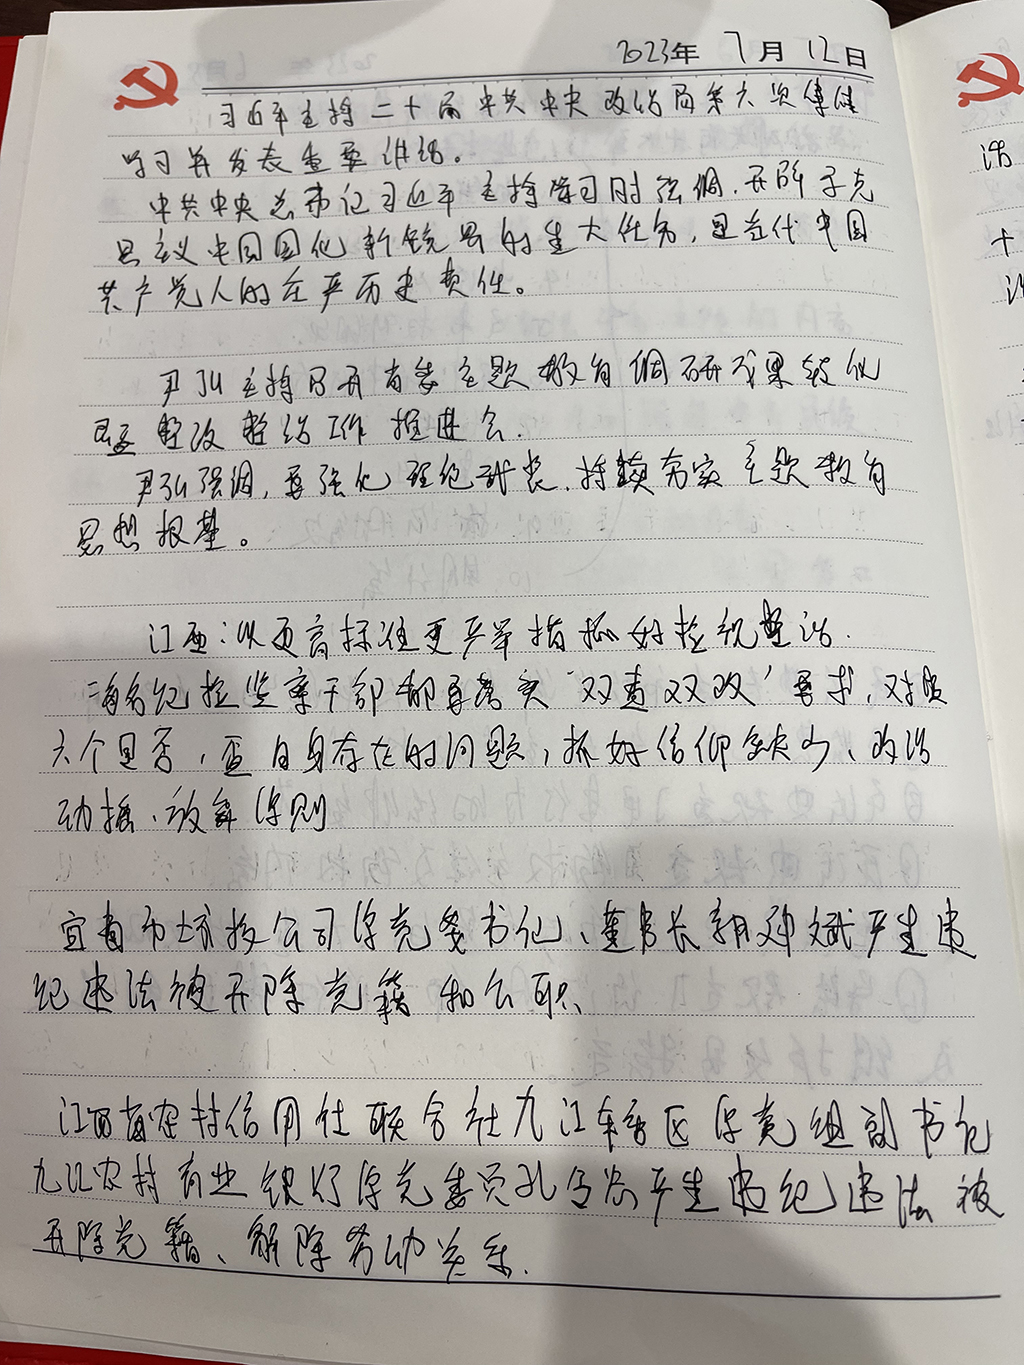 2023年 7月 12日
习近平主持二十届中共中央政治局第六次集体
学习并发表重要讲话。
中共中央总书记习近平主持学习时强调,开辟马克
思主义中国化新境界的重大任务,是当代中国
共产党人的庄严历史责任。
尹弘主持召开省委主题教育调研成果转化
暨整改整治工作推进会.
尹弘强调,要强化理论武装,持续夯实主题教育
思想根基。
江西:以更高标准更严举措抓好检视整治.
每名纪检监察干部都要落实“双查双改”要求,对照
六个是否,查自身存在的问题,抓好信仰缺失、政治
动摇、放弃原则
宜春市城投公司原党委书记、董事长 严重违
纪违法被开除党籍和公职、
江西省农村信用社联合社九江辖区原党组副书记
九江农村商业银行原党委委员孔 严重违纪违法被
开除党籍、解除劳动关系.